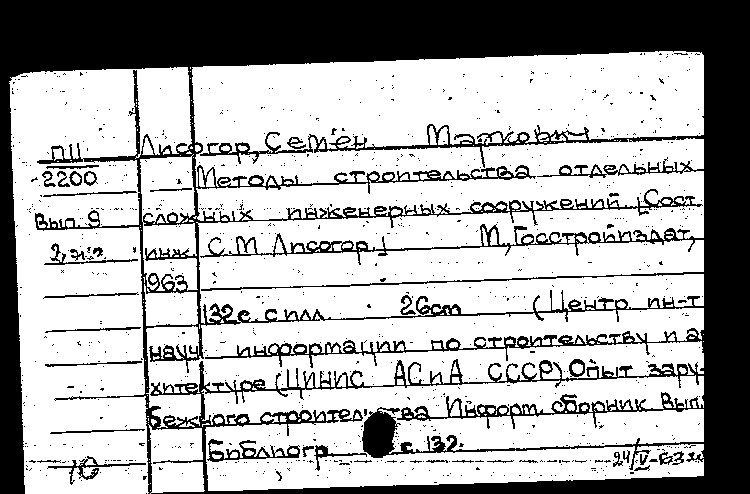 П11 Лисогор, Семён Маркович.
2200 Методы строительства отдельных
Вып. 9 сложных инженерных сооружений. [Сост.
2 экз инж. С.М Лисогор.] М., Госстройиздат,
1963
132 с. с илл. 26cm (Центр. ин-т
науч. информации по строительству и ар
хитектуре (ЦИНИС АСиА СССР) Опыт зару-
бежного строительства Информ. сборник Вып.
Библиогр. с. 132.
10 24/V-63